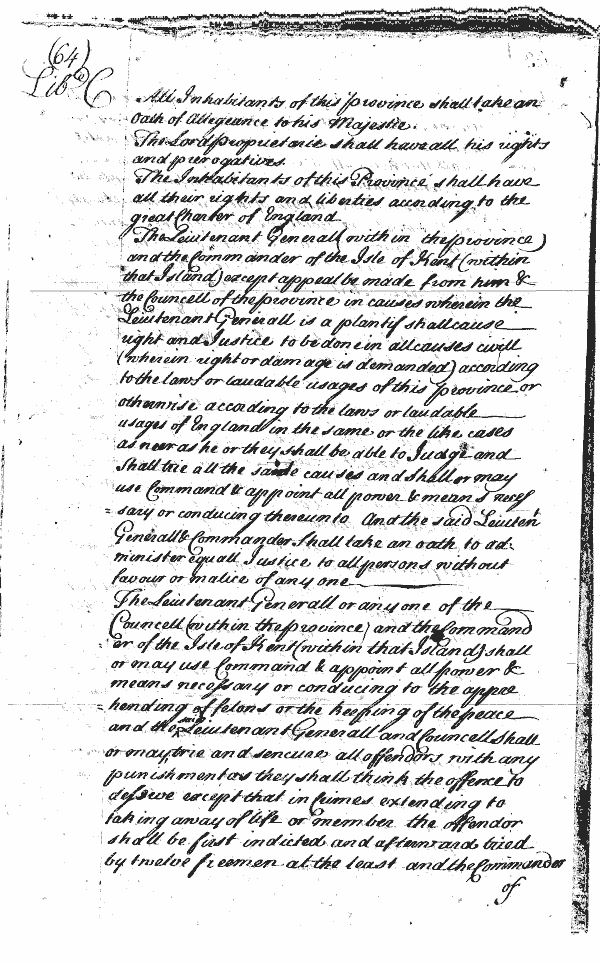 (64)
Lib C
All Inhabitants of this province shall take an
Oath of Allegeance to his Majestie.
The Lord proprietarie shall have all his rights
and prerogatives.
The Inhabitants of this Province shall have
all their rights and liberties according to the
great Charter of England
The Leiutenant Generall (with in the province)
and the Commander of the Isle of Kent (within
that Island) except appeal be made from him &
the Councell of the province in causes wherein the
Leiutenant Generall is a plantif shall cause
right and Justice to be done in all causes civill
(wherein right or damage is demanded) according
to the laws or laudable usages of this province or
otherwise according to the laws or laudable
usages of England in the same or the like cases
as neer as he or they shall be able to Judge and
Shall trie all the same causes and shall or may
use Command & appoint all power & means neces
sary or conducing thereunto And the said Lieuten
Generall & Commander Shall take an oath to ad:
minister equall Justice to all persons without
favour or malice of any one
The Leiutenant Generall or any one of the
Councell (within the province) and the Command
er of the Isle of Kent (within that Island) shall
or may use Command & appoint all power &
means necessary or conducing to the appre
hending of felons or the keeping of the peace
and the said Leiutenant Generall and Councell Shall
or may trie and sencure all offendors with any
punishment as they shall think the offence to
deserve except that in Crimes extending to
taking away of life or member the offendor
shall be first indicted and afterward tried
by twelve freemen at the least and the Commander
of